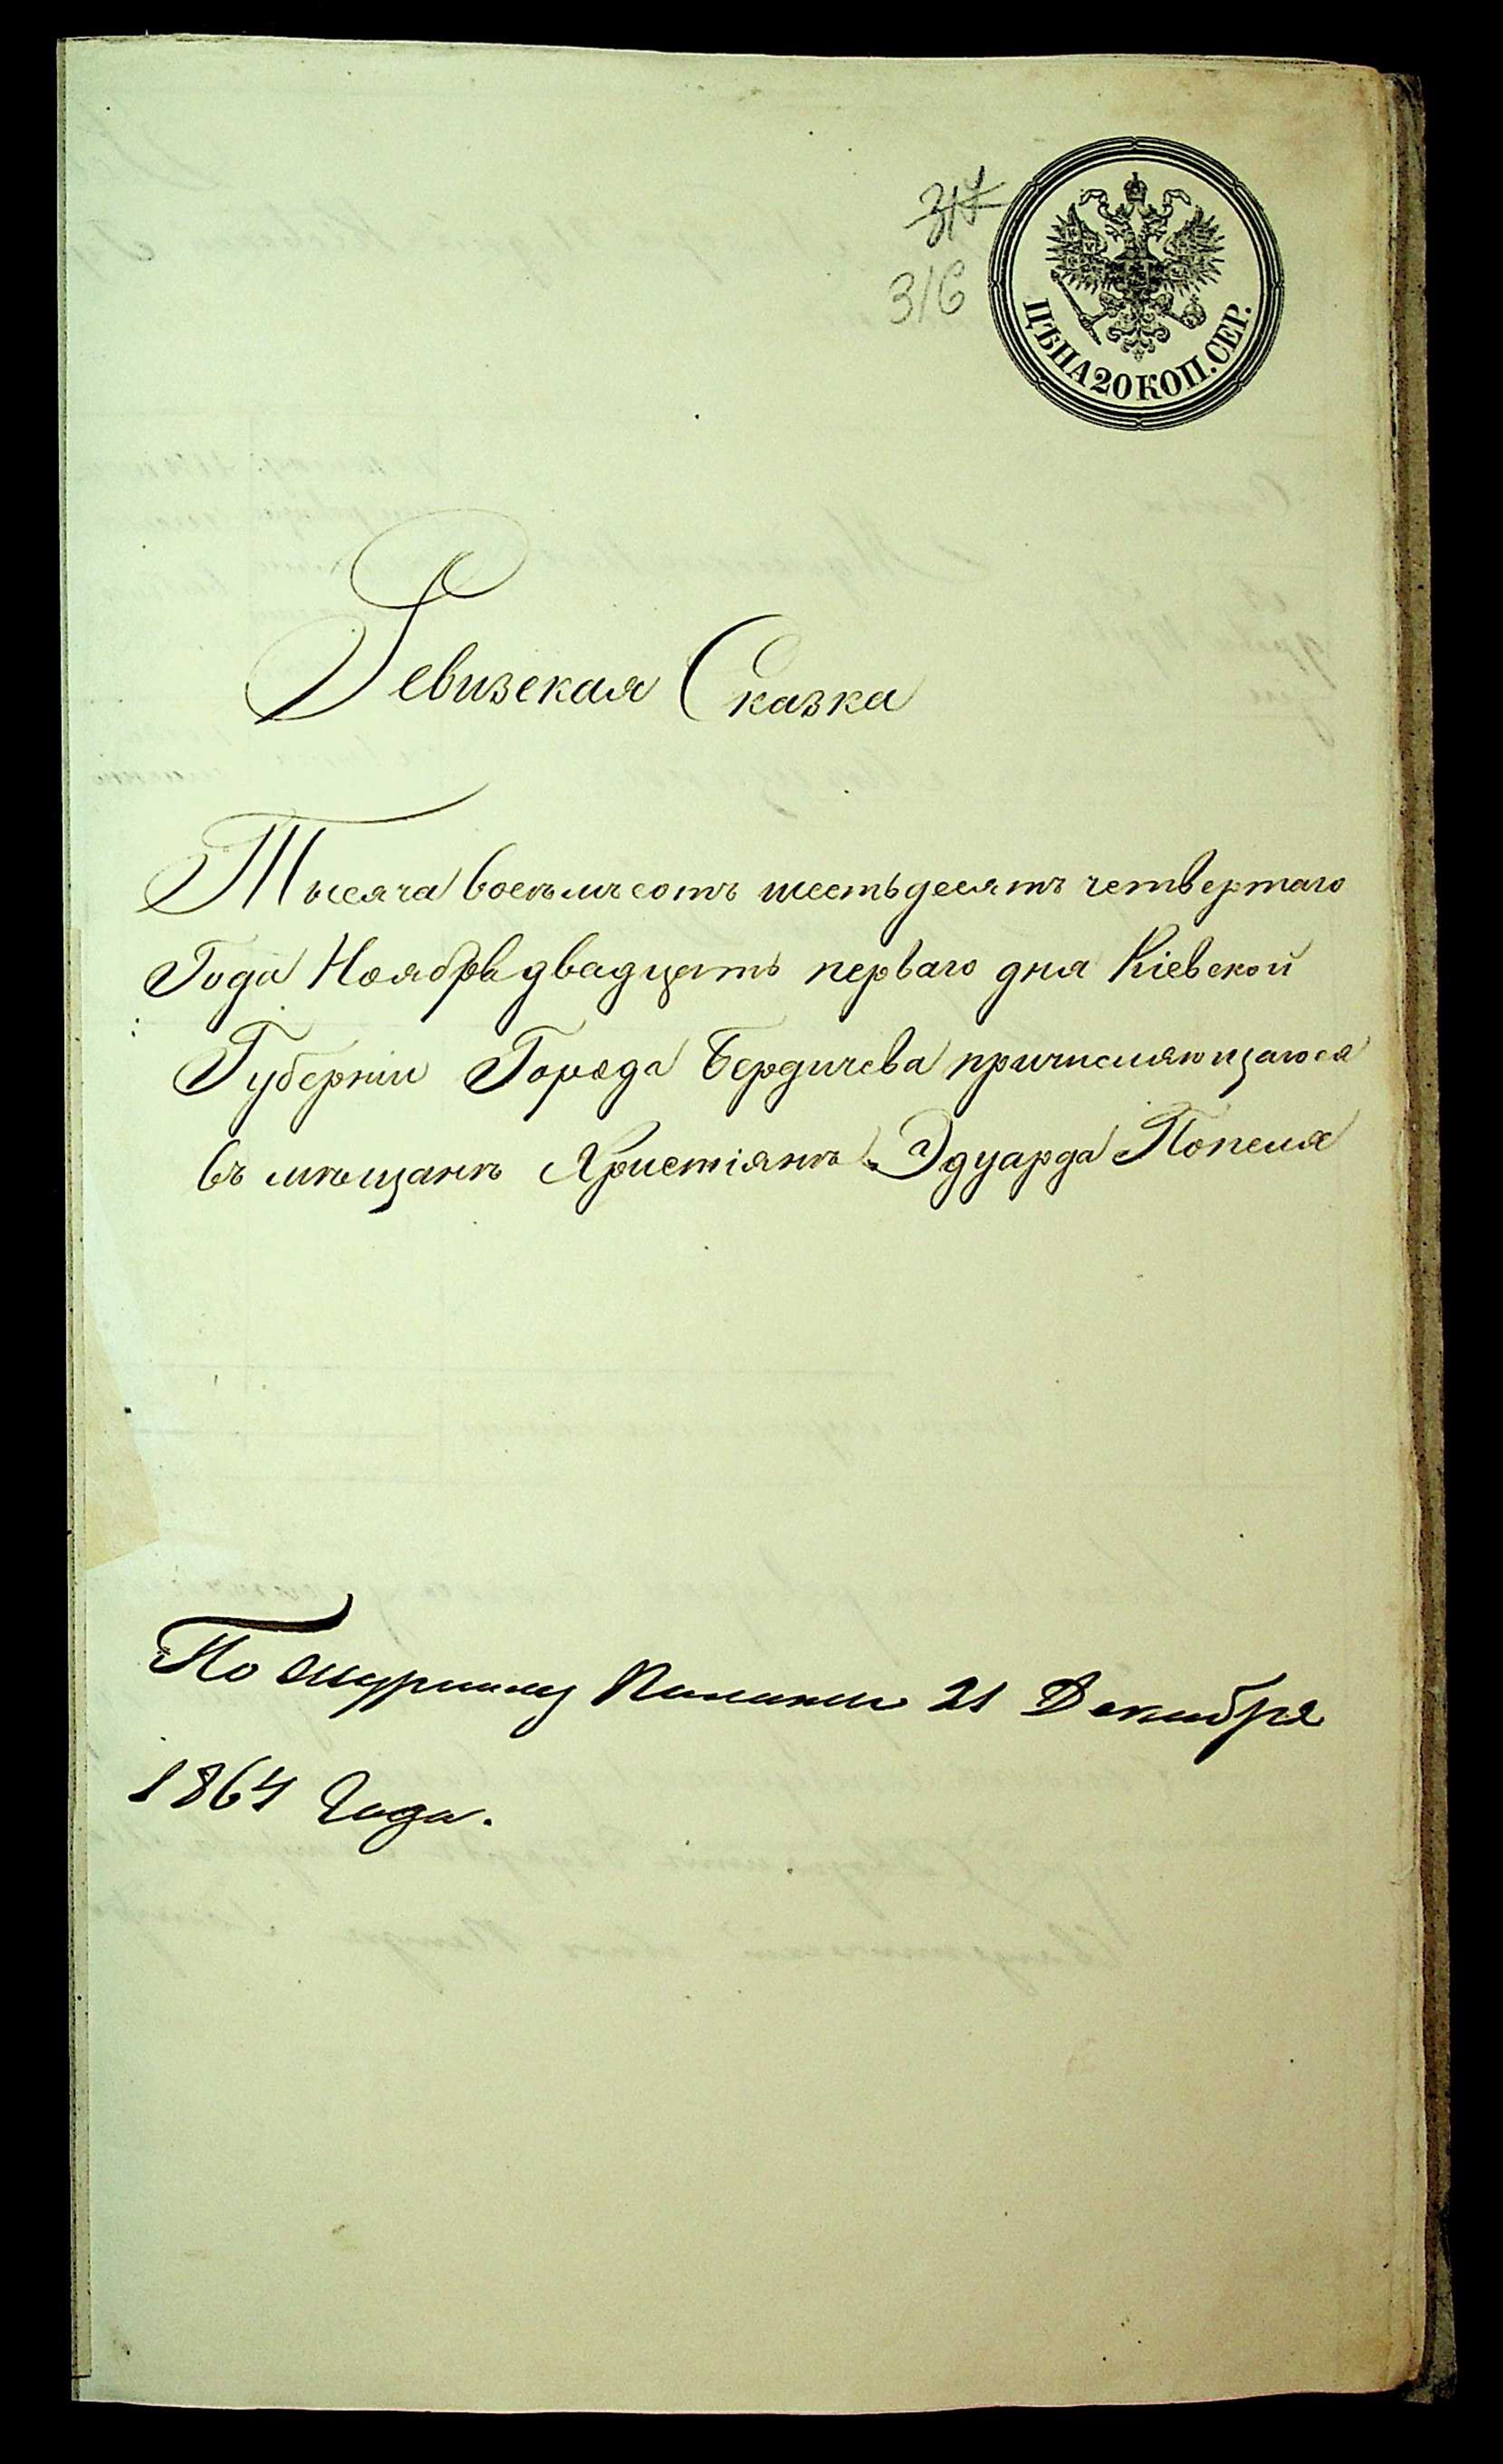 317
316
ЦѢНА 20 КОП. СЕР.
Ревизская Сказка
Тысяча восѣмъсотъ шестьдесятъ четвертаго
Года Ноября двадцать перваго дня Кіевской
Губерніи Города Бердичева причисляющагося
въ мѣщанѣ Христіянѣ Эдуарда Попеля
По журналу Палаты 21 Декабря
1864 Года.